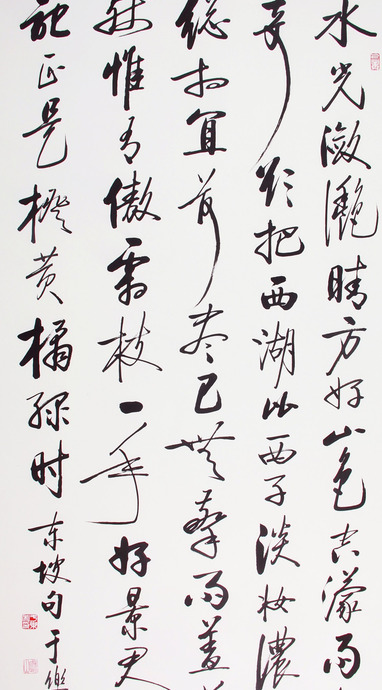 水光潋滟晴方好山色空濛雨
奇欲把西湖比西子淡妆濃
総相宜荷尽已無擎雨盖
残惟有傲霜枝一年好景君
記正是橙黄橘绿时东坡句于